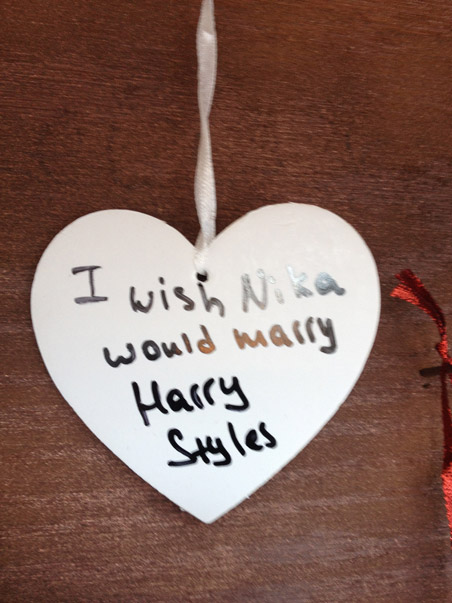 I wish Nika
would marry
Harry
Styles